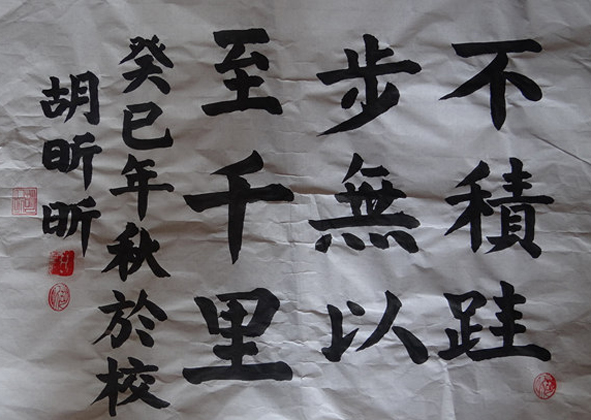 不積跬
步無以
至千里
癸巳年秋於校
胡昕昕